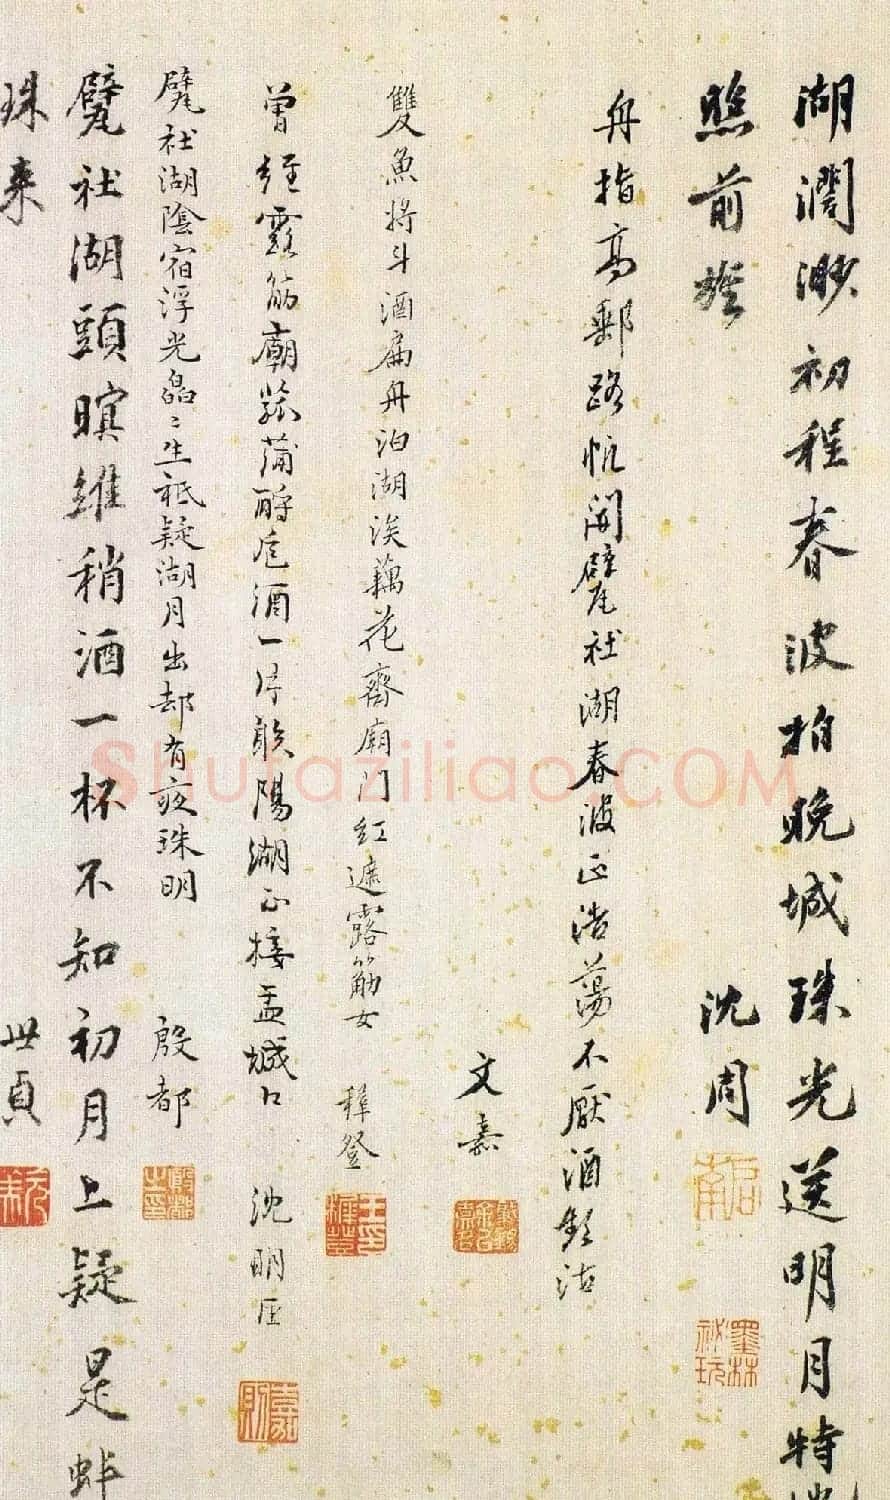 湖濶渺初程春波拍晚城珠光送明月特
照前旌
沈周
啓南
墨林祕玩
舟指高郵路帆開甓社湖春波正浩蕩不厭酒頻沽
文嘉
雙魚將斗酒扁舟泊湖涘藕花齊廟門紅遮露筋女
穉登
曾經露筋廟菰蒲酹卮酒一片射陽湖正接盂城口
沈明臣
嘉則
甓社湖陰宿浮光皛〻生祗疑湖月出却有夜珠明
殷都
甓社湖頭暝維稍酒一杯不知初月上疑是蚌
珠来
世貞
Shufaziliao.COM